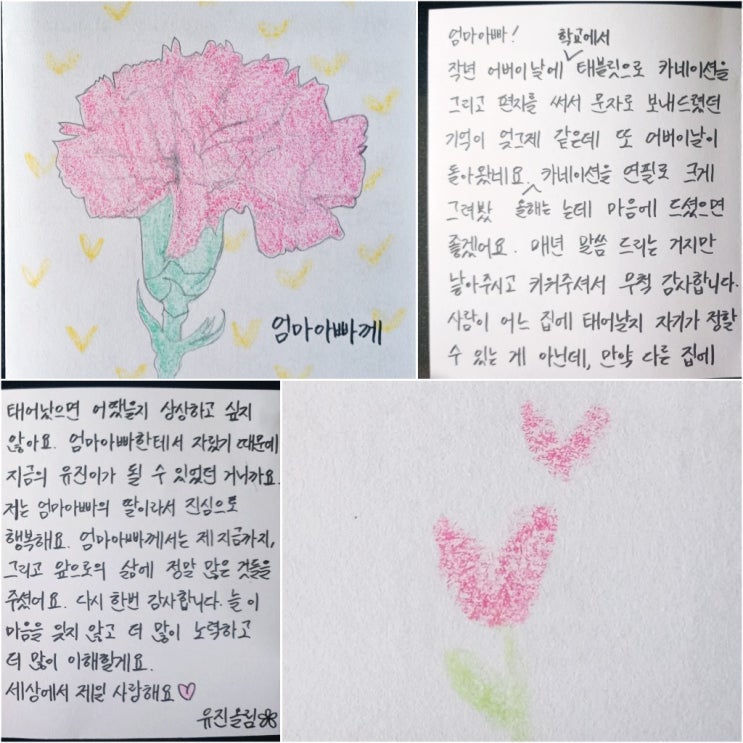 엄마아빠께
엄마아빠! 학교에서
작년 어버이날에 태블릿으로 카네이션을
그리고 편지를 써서 문자로 보내드렸던
기억이 엊그제 같은데 또 어버이날이
돌아왔네요. 카네이션을 연필로 크게
그려봤 올해는 는데 마음에 드셨으면
좋겠어요. 매년 말씀 드리는 거지만
낳아주시고 키워주셔서 무척 감사합니다.
사람이 어느 집에 태어날지 자기가 정할
수 있는 게 아닌데, 만약 다른 집에
태어났으면 어땠을지 상상하고 싶지
않아요. 엄마아빠한테서 자랐기 때문에
지금의 유진이가 될 수 있었던 거니까요.
저는 엄마아빠의 딸이라서 진심으로
행복해요. 엄마아빠께서는 제 지금까지,
그리고 앞으로의 삶에 정말 많은 것들을
주셨어요. 다시 한번 감사합니다. 늘 이
마음을 잊지 않고 더 많이 노력하고
더 많이 이해할게요.
세상에서 제일 사랑해요♡
유진올림